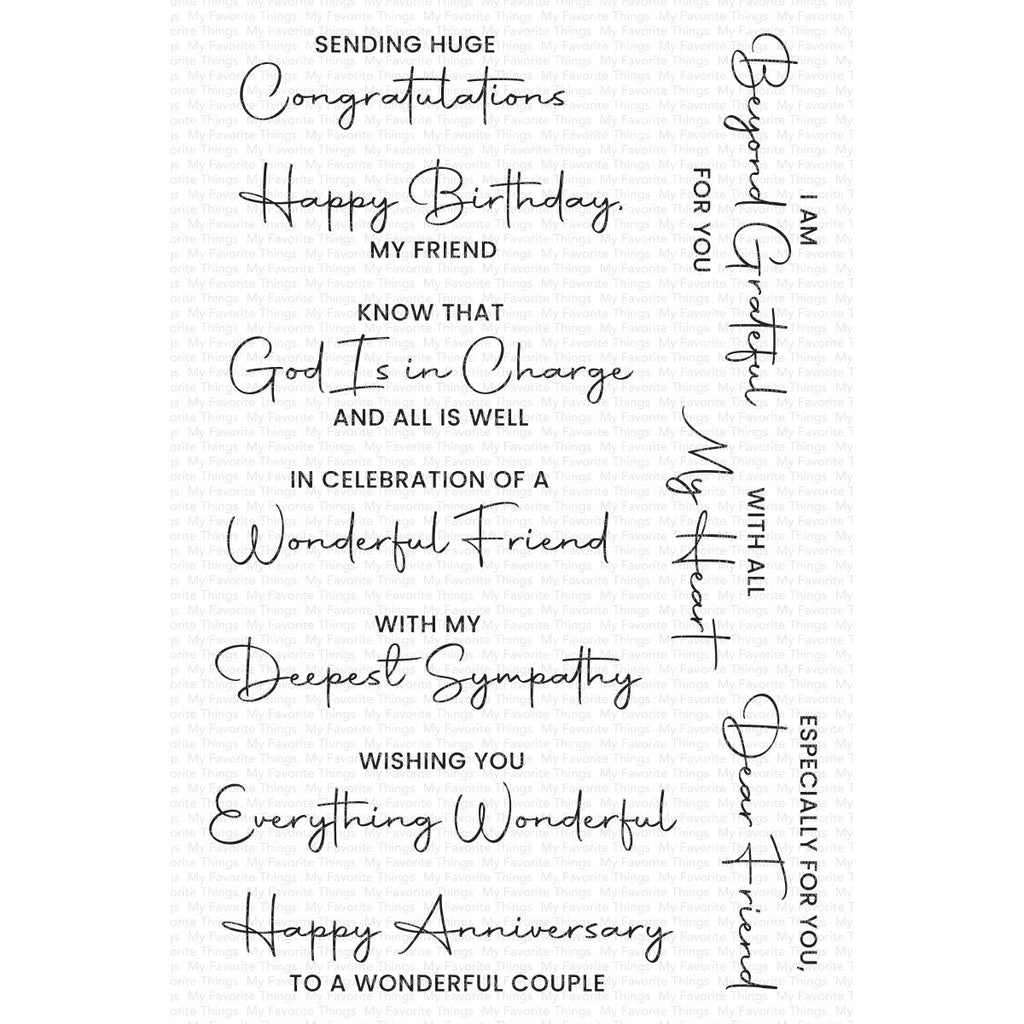 SENDING HUGE
Congratulations
Happy Birthday,
MY FRIEND
KNOW THAT
God Is in Charge
AND ALL IS WELL
IN CELEBRATION OF A
Wonderful Friend
WITH MY
Deepest Sympathy
WISHING YOU
Everything Wonderful
Happy Anniversary
TO A WONDERFUL COUPLE
I AM
Beyond Grateful
FOR YOU
WITH ALL
My Heart
ESPECIALLY FOR YOU,
Dear Friend
My Favorite Things